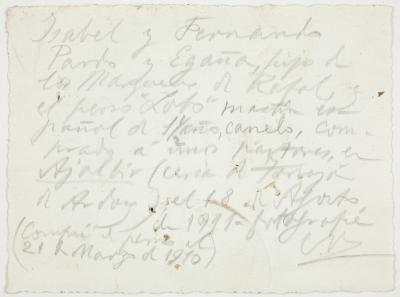 Isabel y Fernando
Pardo y Egaña, hijo de
los Marqueses de Rafal y
el perro "Lobo" mastín es-
pañol de 1½ año, canelo, com-
prado a unos pastores, en
Ajalvir (cerca de Torrejón
de Ardoz) el 18 de Agosto
de 1911 - fotografié
(Compré el perro el
21 de Marzo de 1910)